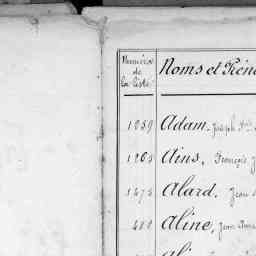 Numéros
de
la liste
Noms et Prén
1059 Adam. Joseph
1265 Ains, François J
1474 Alard. Jean
489 Aline, Jean